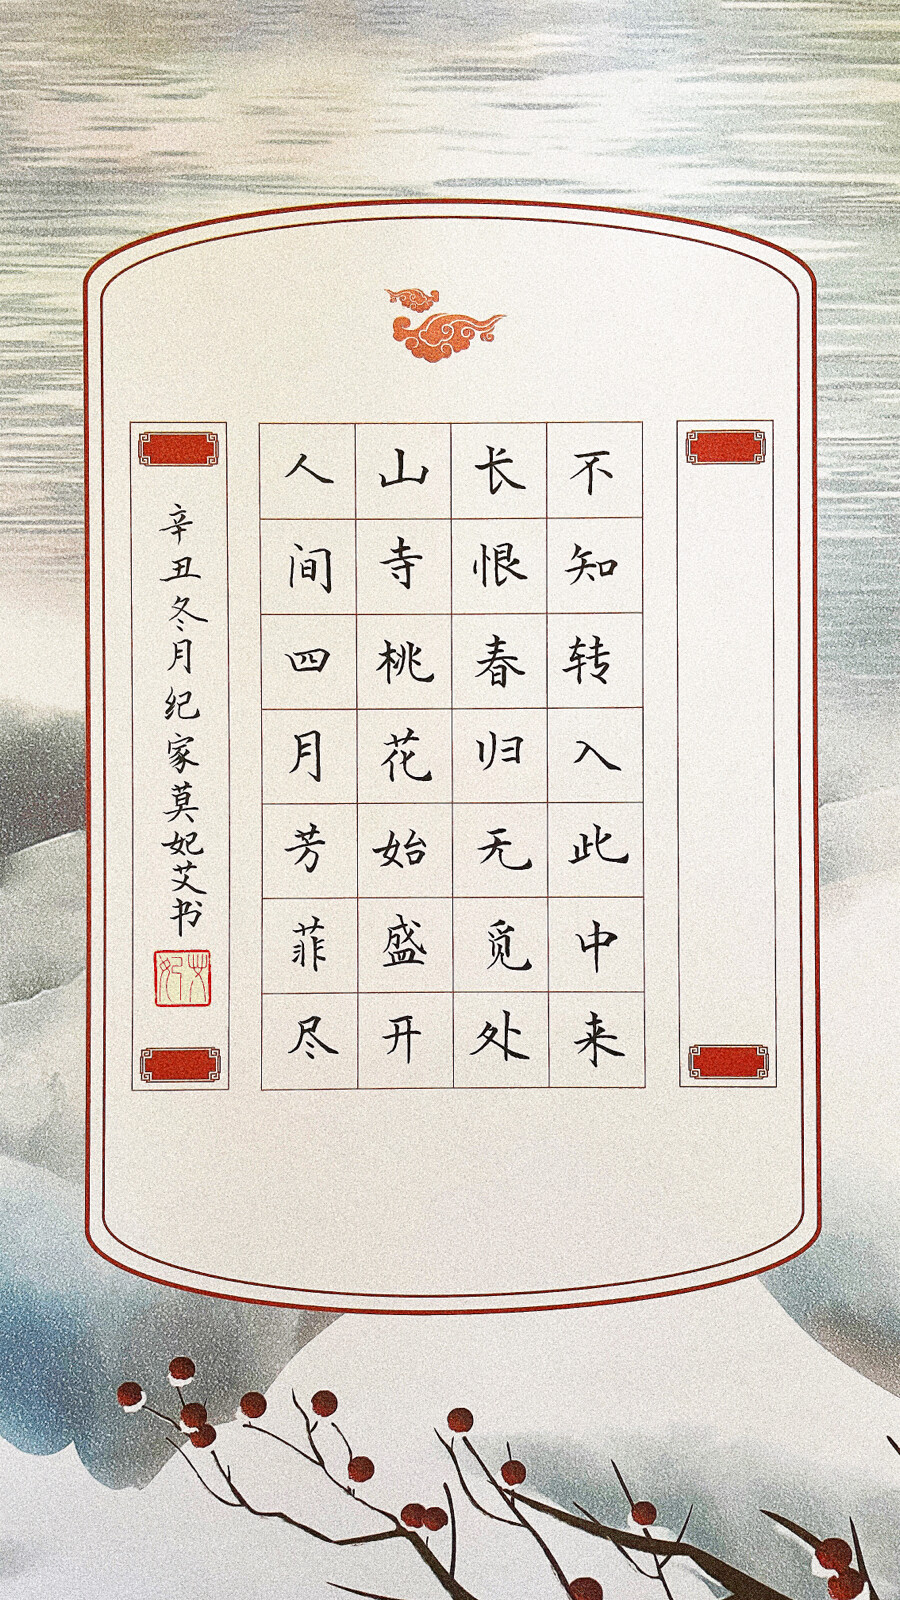 人间四月芳菲尽
山寺桃花始盛开
长恨春归无觅处
不知转入此中来
辛丑冬月纪家莫妃艾书
妃艾